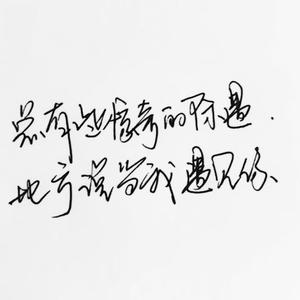 总有些惊奇的际遇.
比方说当我遇见你